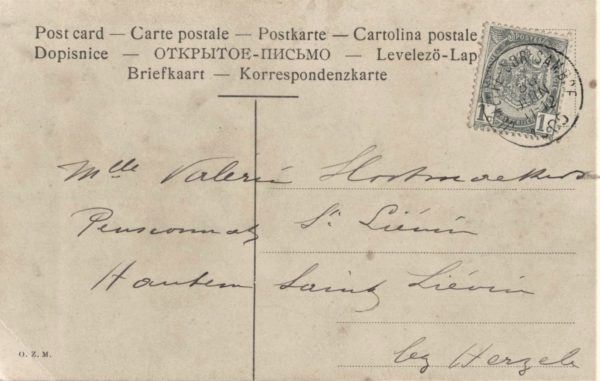 Post card — Carte postale — Postkarte — Cartolina postale
Dopisnice — ОТКРЫТОЕ-ПИСЬМО — Levelező-Lap
Briefkaart — Korrespondenzkarte
1 1
Mlle Valerie Hostmaekers
Pensionnat St Liévin
Hautem Saint Liévin
bez Herzele
O. Z. M.